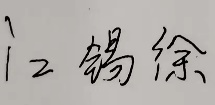 江锡徐